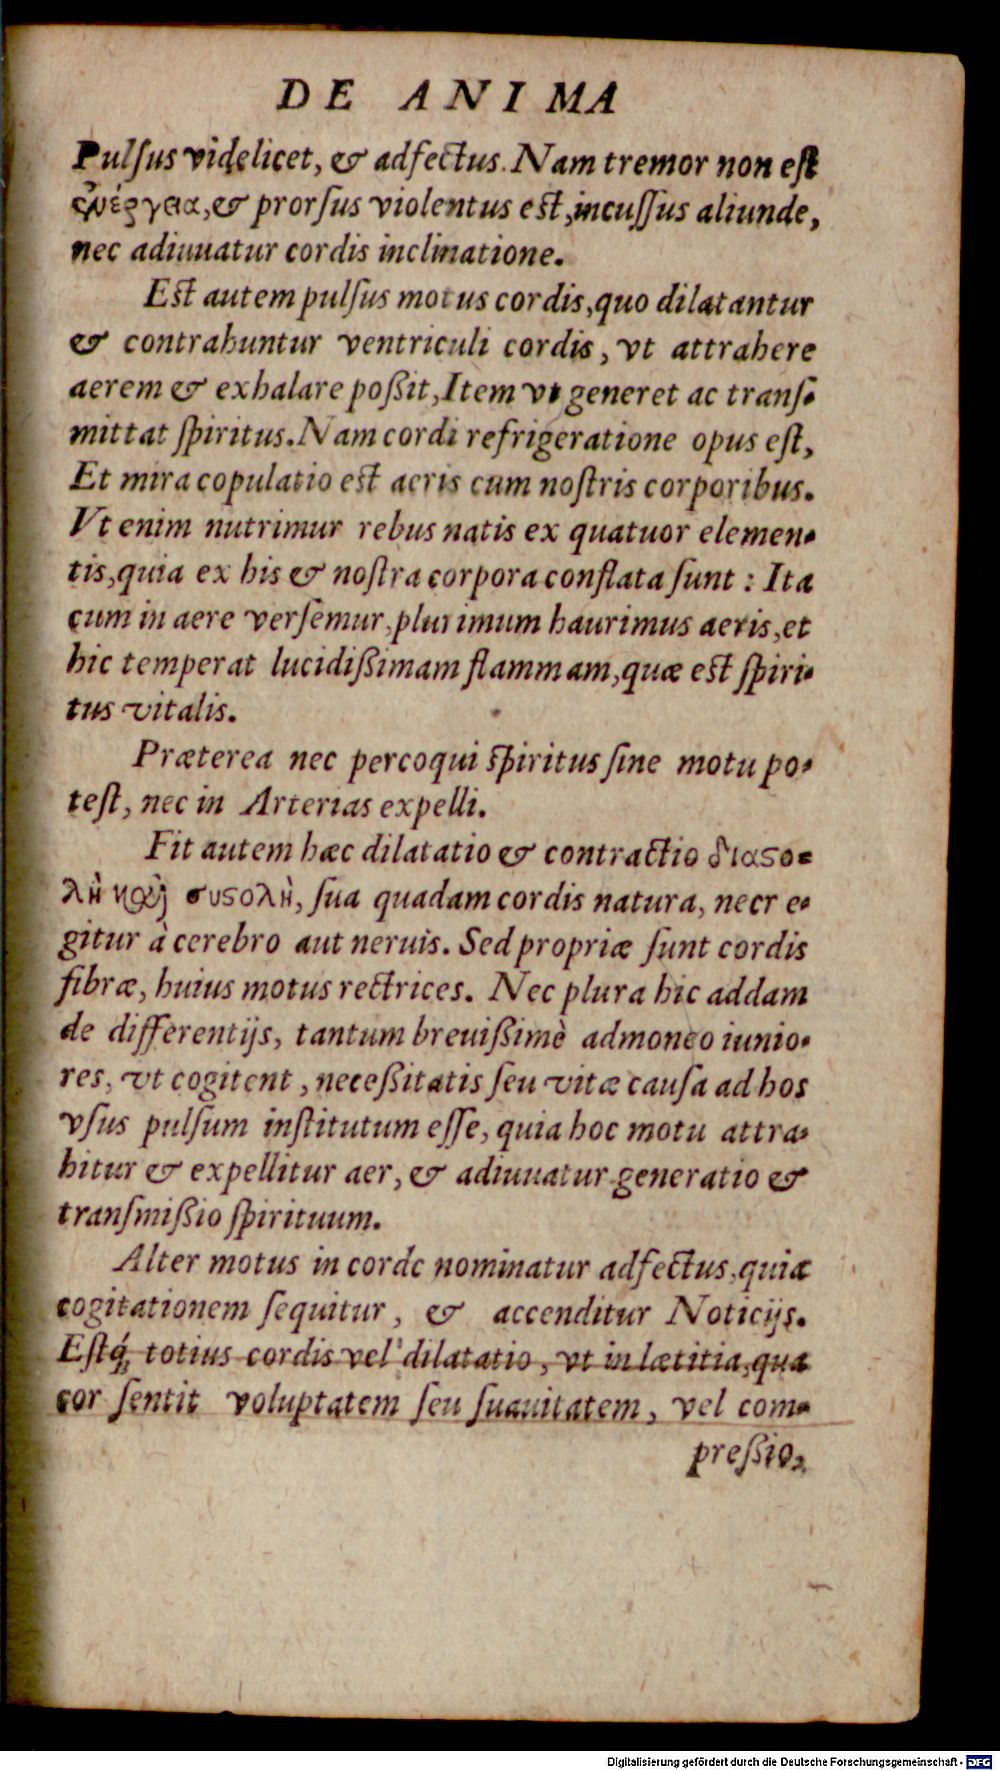 DE ANIMA
Pulſus videlicet, & adfectus. Nam tremor non eſt
ἐνέργεια, & prorſus violentus eſt, incuſſus aliunde,
nec adiuuatur cordis inclinatione.
Eſt autem pulſus motus cordis, quo dilatantur
& contrahuntur ventriculi cordis, vt attrahere
aerem & exhalare poßit, Item vt generet ac tranſ-
mittat ſpiritus. Nam cordi refrigeratione opus eſt,
Et mira copulatio eſt aeris cum noſtris corporibus.
Vt enim nutrimur rebus natis ex quatuor elemen-
tis, quia ex his & noſtra corpora conflata ſunt : Ita
cum in aere verſemur, plurimum haurimus aeris, et
hic temperat lucidißimam flammam, quæ eſt ſpiri-
tus vitalis.
Præterea nec percoqui ſpiritus ſine motu po-
teſt, nec in Arterias expelli.
Fit autem hæc dilatatio & contractio διαϛο-
λὴ καὶ συϛολὴ, ſua quadam cordis natura, necr e-
gitur à cerebro aut neruis. Sed propriæ ſunt cordis
fibræ, huius motus rectrices. Nec plura hic addam
de differentijs, tantum breuißimè admoneo iunio-
res, vt cogitent, neceßitatis ſeu vitæ cauſa ad hos
vſus pulſum inſtitutum eſſe, quia hoc motu attra-
hitur & expellitur aer, & adiuuatur generatio &
tranſmißio ſpirituum.
Alter motus in corde nominatur adfectus, quia
cogitationem ſequitur, & accenditur Noticijs.
Eſtq́; totius cordis vel dilatatio, vt in lætitia, qua
cor ſentit voluptatem ſeu ſuauitatem, vel com-
preßio,
Digitalisierung gefördert durch die Deutsche Forschungsgemeinschaft - DFG